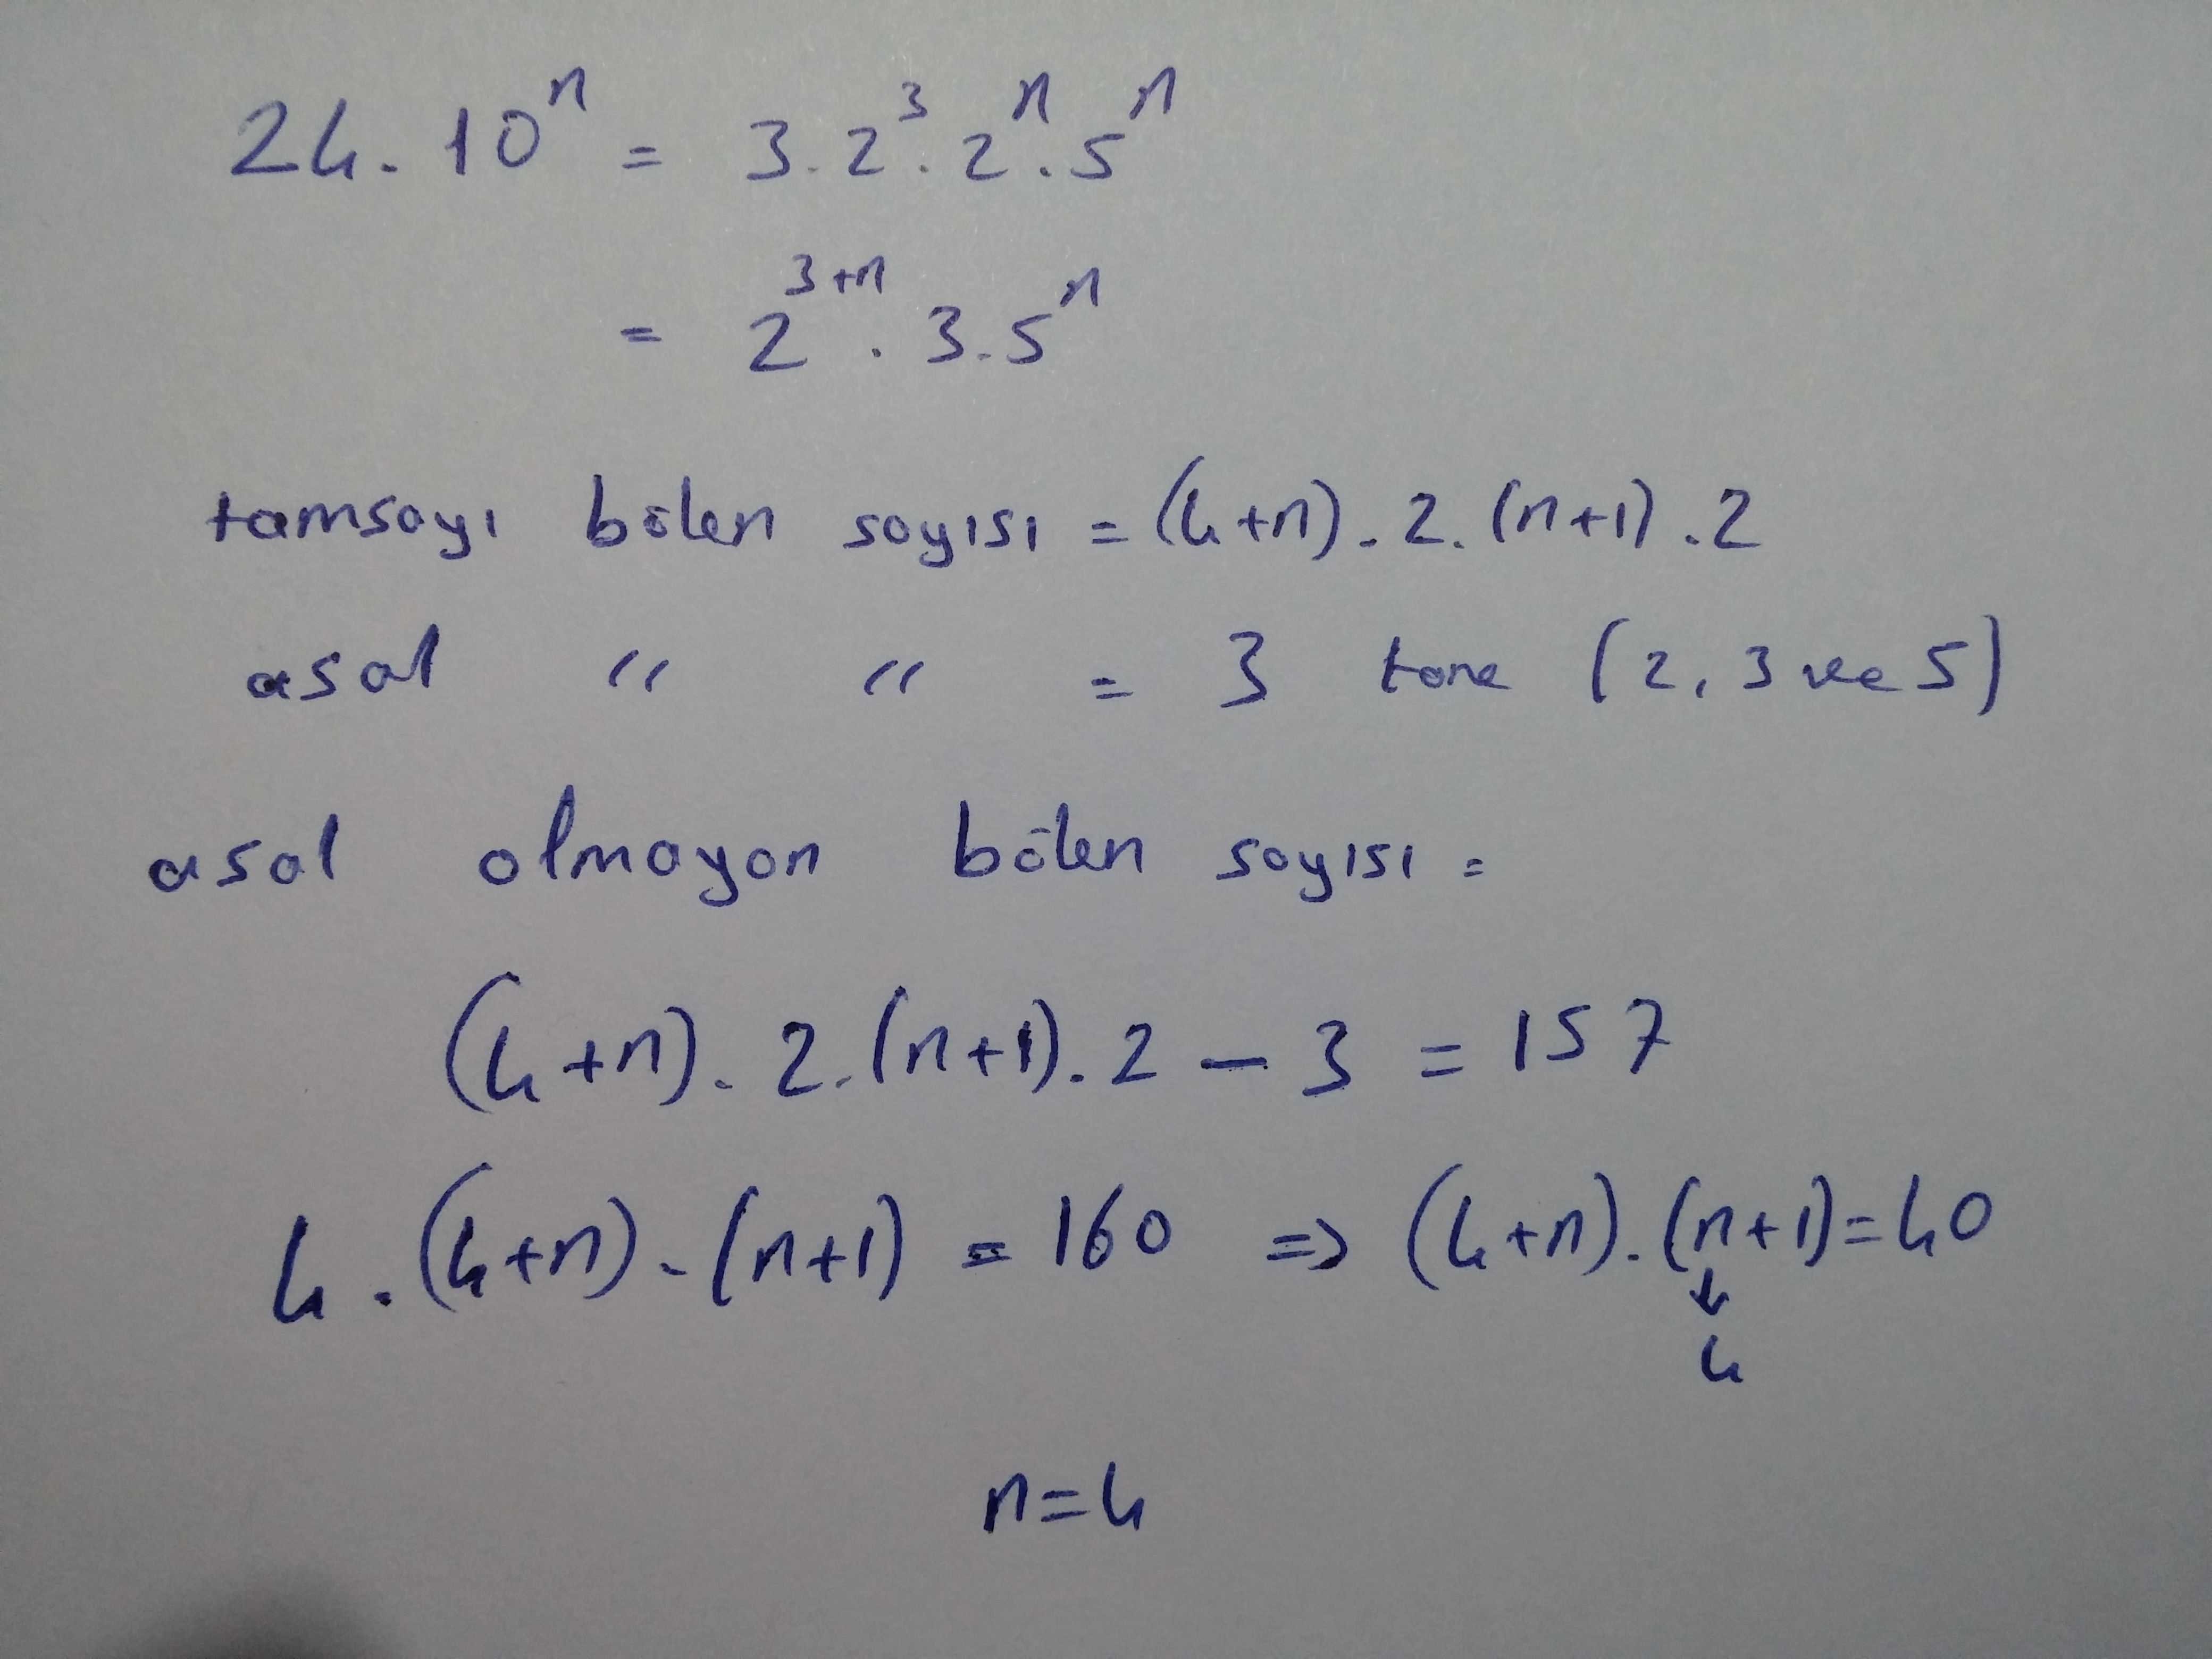 24. 10ⁿ = 3. 2³. 2ⁿ. 5ⁿ
= 2³⁺ⁿ . 3. 5ⁿ
tamsayı bölen sayısı = (4+n). 2. (n+1). 2
asal " " = 3 tane (2, 3 ve 5)
asal olmayan bölen sayısı =
(4+n). 2. (n+1). 2 - 3 = 157
4. (4+n). (n+1) = 160 => (4+n). (n+1) = 40
↓
4
n=4